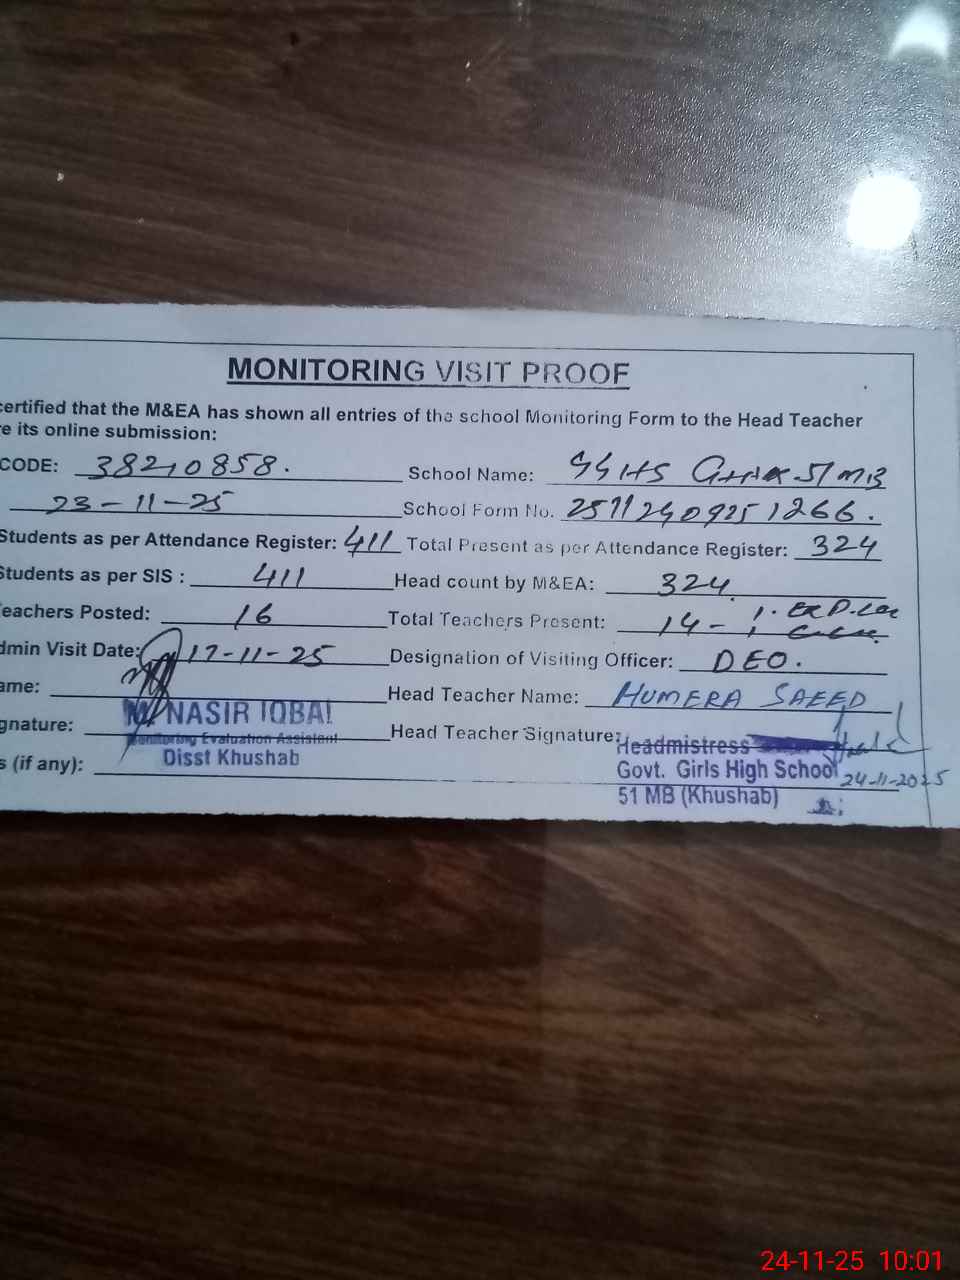 MONITORING VISIT PROOF
certified that the M&EA has shown all entries of the school Monitoring Form to the Head Teacher
re its online submission:
CODE: 38210858. School Name: GGHS 51 MB
23-11-25 School Form No. 25112409251266.
Students as per Attendance Register: 411 Total Present as per Attendance Register: 324
Students as per SIS : 411 Head count by M&EA: 324
eachers Posted: 16 Total Teachers Present: 14 -
dmin Visit Date: 17-11-25 Designation of Visiting Officer: DEO.
ame: Head Teacher Name: HUMERA SAEED
M. NASIR IQBAL
gnature: Head Teacher Signature:
Monitoring Evaluation Assistant Headmistress
Disst Khushab Govt. Girls High School 24-11-2025
s (if any): 51 MB (Khushab)
24-11-25 10:01